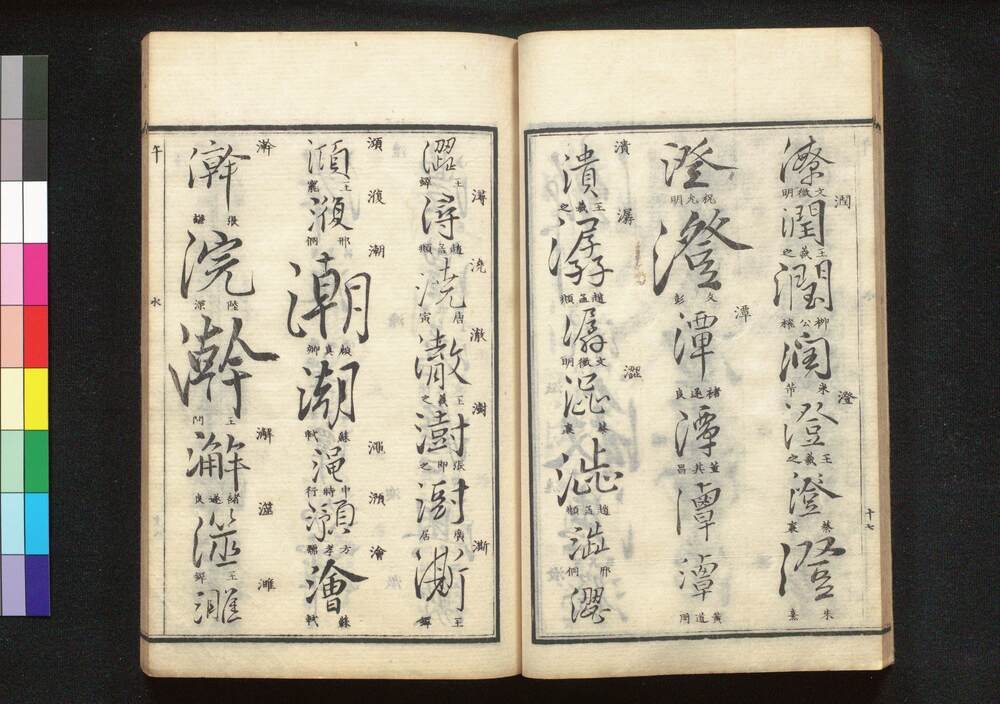 潦
文徵明
潤
潤
王羲之
潤
柳公權
潤
米芾
澄
澄
王羲之
澄
蔡襄
澄
朱熹
十七
澄
祝允明
澄
文彭
潭
潭
褚遂良
潭
董其昌
潭
潭
黄道周
潰
潰
王羲之
潺
潺
趙孟頫
潺
文徵明
澀
澀
蔡襄
澀
趙孟頫
澀
邢侗
澀
澀
王鐸
潯
潯
趙孟頫
澆
澆
唐寅
澈
澈
王羲之
澍
澍
張即之
澍
居
澌
澌
王鐸
澒
澒
王寵
澓
邢侗
潮
潮
顏真卿
潮
蘇軾
澠
澠
行
瀕
方孝孺
澮
澮
蘇軾
澣
澣
張
浣
陸深
澣
王問
澥
澥
褚遂良
澨
澨
王鐸
濉
濉
午
水